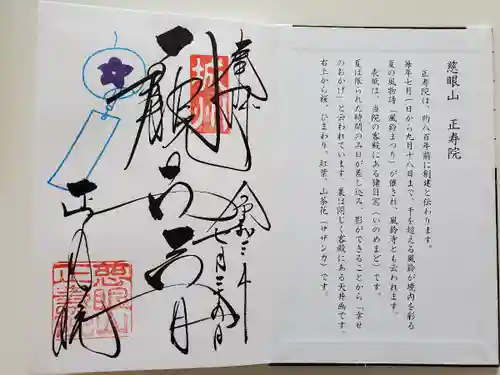 慈眼山　正寿院
正寿院は、約八百年前に創建と伝わります。
毎年七月一日から九月十八日まで、千を超える風鈴が境内を彩る
夏の風物詩「風鈴まつり」が催され、風鈴寺とも云われます。
表紙は、当院の客殿にある猪目窓（いのめまど）です。
夏は限られた時間のみ日が差し込み、影ができることから「幸せ
のおかげ」と云われています。裏は同じく客殿にある天井画です。
右上から桜、ひまわり、紅葉、山茶花（サザンカ）です。
令和三年
七月三十日
城州
正寿院
慈眼山
正寿院